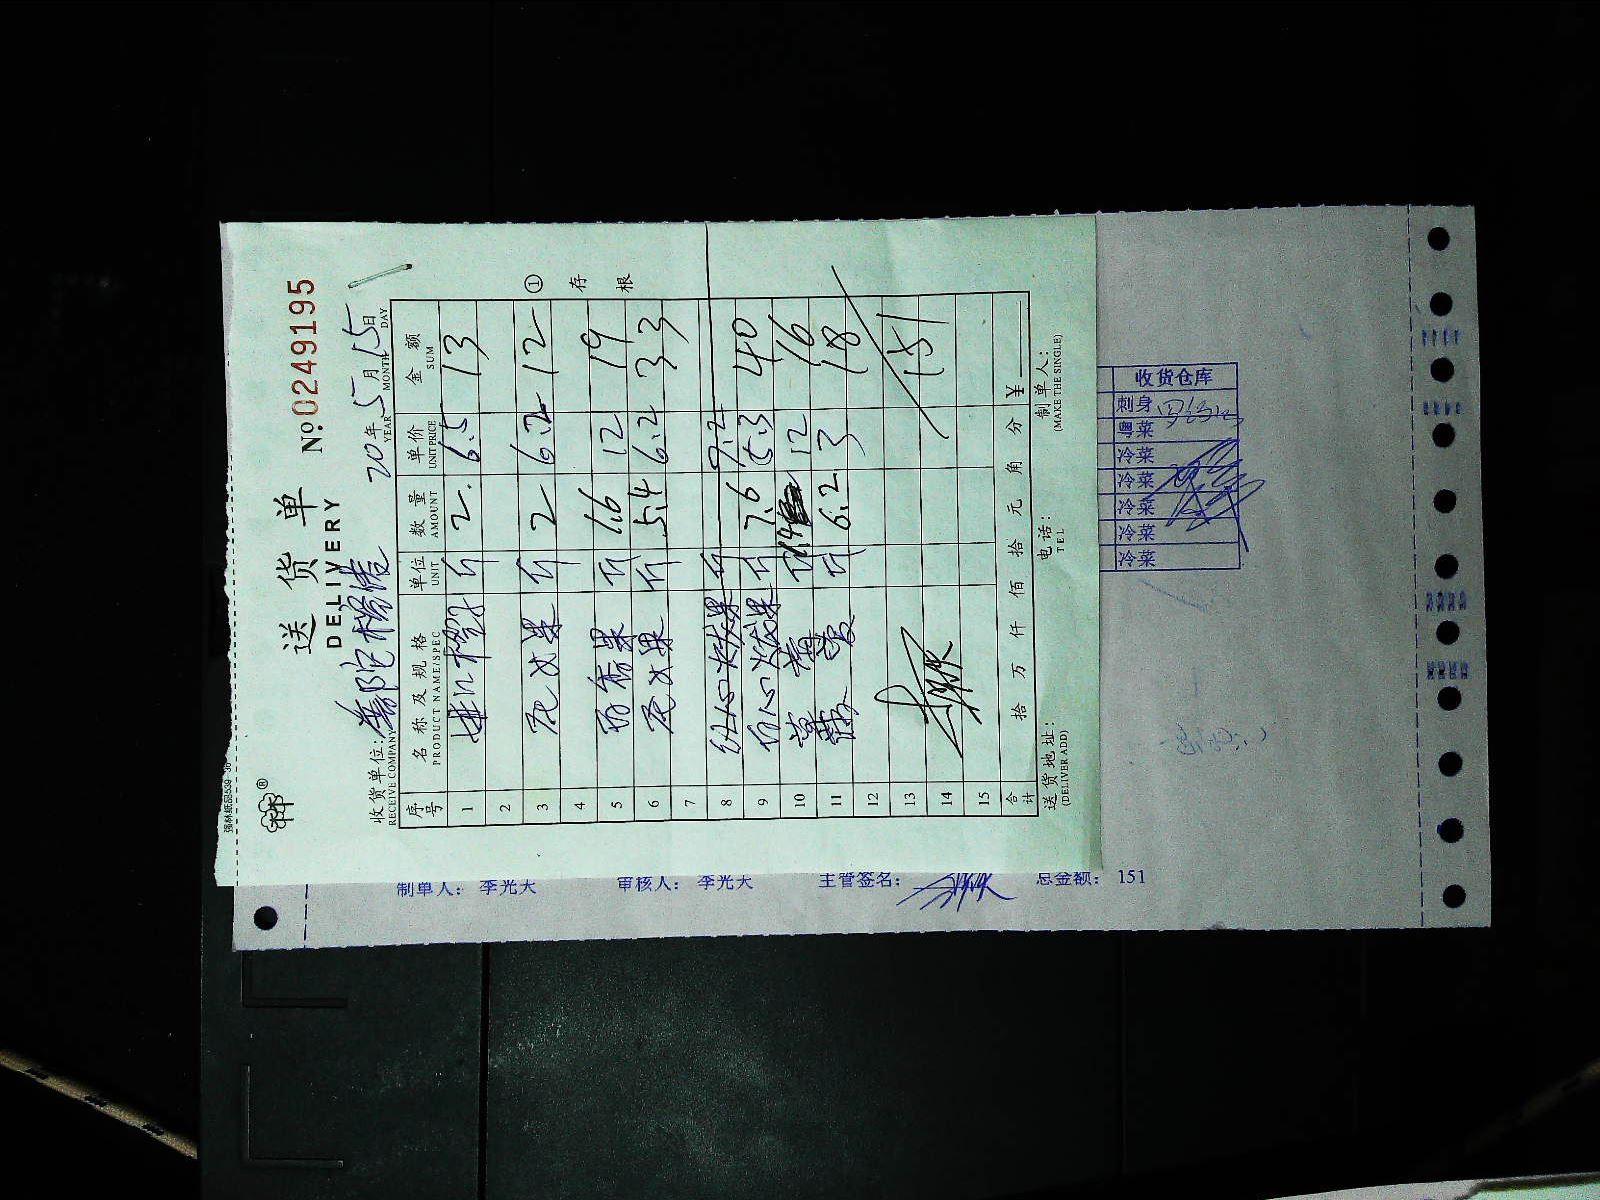 强林纸品539-30
®
送货单
DELIVERY
No.0249195
收货单位:
RECEIVE COMPANY
20 年 5 月 15 日
YEAR MONTH DAY
序号 名称及规格 单位 数量 单价 金额
PRODUCT NAME/SPEC UNIT AMOUNT UNIT PRICE SUM
1 进口橙子 斤 2. 6.5 13
2
3 无花果 斤 2 6.2 12
4
5 百香果 斤 1.6 12 19
6 斤 5.4 6.2 33
7
8 红心火龙果 斤 9.2
9 白心火龙果 斤 7.6 5.3 40
10 斤 1.4 12 16
11 斤 6.2 3 18
12
13
14 151
15
合计 拾 万 仟 佰 拾 元 角 分 ¥
送货地址: 电话: 制单人:
(DELIVER ADD) TEL (MAKE THE SINGLE)
①存根
收货仓库
刺身
粤菜
冷菜
冷菜
冷菜
冷菜
冷菜
制单人: 李光天 审核人: 李光天 主管签名: 总金额: 151